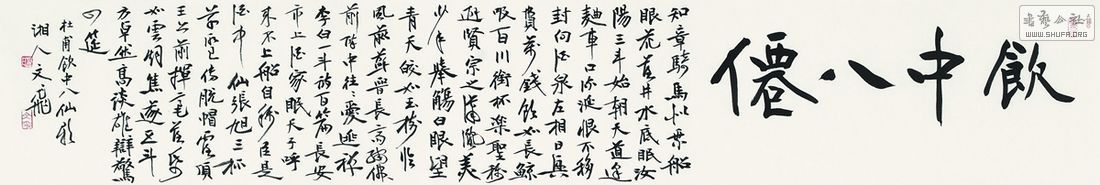 飲中八僊
知章騎馬似乘船
眼花落井水底眠汝
陽三斗始朝天道逢
麯車口流涎恨不移
封向酒泉左相日興
費萬錢飲如長鯨
吸百川銜杯樂聖稱
避賢宗之瀟灑美
少年舉觴白眼望
青天皎如玉樹臨
風前蘇晉長齋繡佛
前醉中往往愛逃禪
李白一斗詩百篇長安
市上酒家眠天子呼
來不上船自稱臣是
酒中仙張旭三杯
草聖傳脫帽露頂
王公前揮毫落紙
如雲煙焦遂五斗
方卓然高談雄辯驚
四筵
杜甫飲中八仙歌
湘人文飛
WWW.SHUFA.ORG